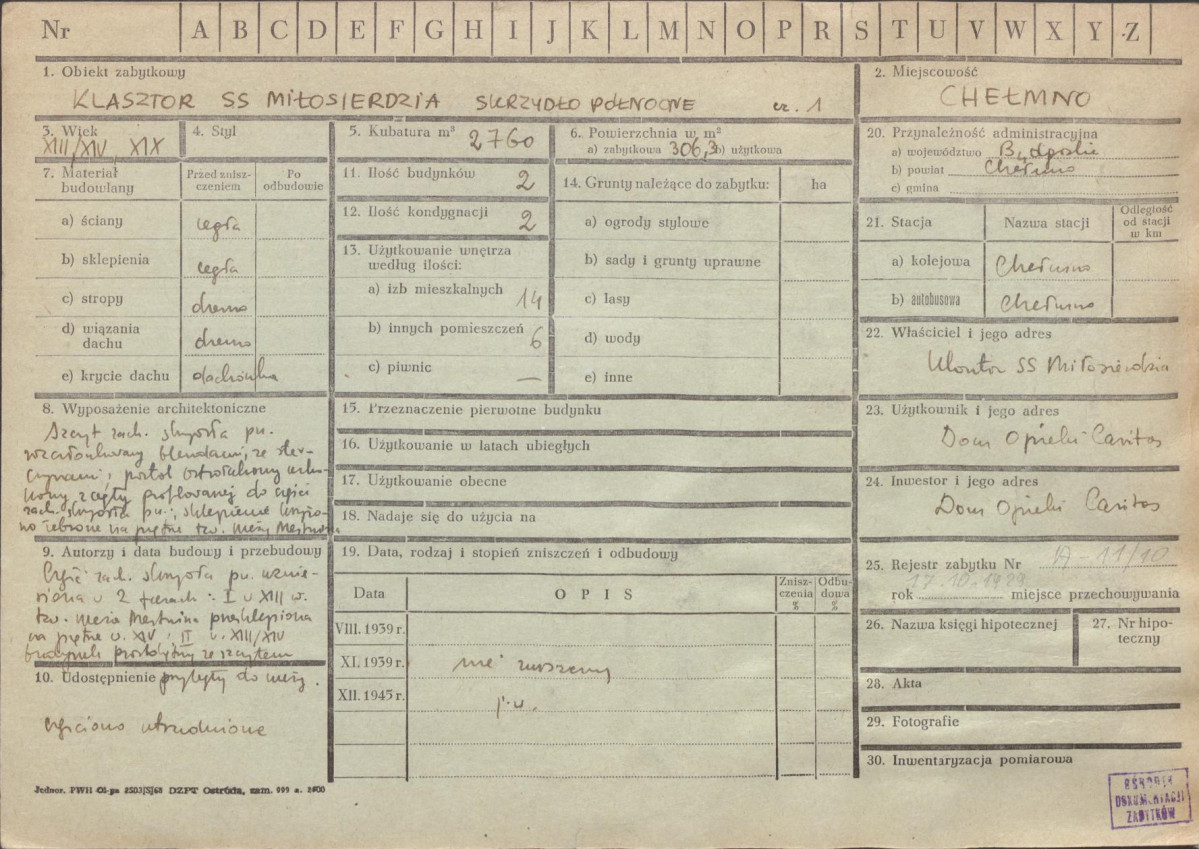 Nr A B C D E F G H I J K L M N O P R S T U V W X Y Z
1. Obiekt zabytkowy
KLASZTOR SS MIŁOSIERDZIA SKRZYDŁO PÓŁNOCNE cz. 1
2. Miejscowość
CHEŁMNO
3. Wiek
XIII/XIV, XIX
4. Styl
5. Kubatura m³ 2760
6. Powierzchnia w m²
a) zabytkowa 306,3 b) użytkowa
7. Materiał budowlany
Przed zniszczeniem
Po odbudowie
a) ściany cegła
b) sklepienia cegła
c) stropy drewno
d) wiązania dachu drewno
e) krycie dachu dachówka
8. Wyposażenie architektoniczne
Szczyt zach. skrzydła pn.
rozczłonkowany blendami, ze ster-
czynami; portal ostrołukowy
cegły profilowanej do części
zach. skrzydła pn.; sklepienie
żebrowe na piętrze tzw. wieży Mestwina
9. Autorzy i data budowy i przebudowy
Część zach. skrzydła pn. wznie-
siona w 2 fazach: I w XIII w.
tzw. wieża Mestwina przesklepiona
na piętrze w XIV; II w. XIII/XIV
budynek prostokątny ze szczytem
przybyły do wieży.
10. Udostępnienie
częściowo utrudnione
11. Ilość budynków 2
12. Ilość kondygnacji 2
13. Użytkowanie wnętrza według ilości:
a) izb mieszkalnych 14
b) innych pomieszczeń 6
c) piwnic —
14. Grunty należące do zabytku: ha
a) ogrody stylowe
b) sady i grunty uprawne
c) lasy
d) wody
e) inne
15. Przeznaczenie pierwotne budynku
16. Użytkowanie w latach ubiegłych
17. Użytkowanie obecne
18. Nadaje się do użycia na
19. Data, rodzaj i stopień zniszczeń i odbudowy
Data OPIS Zniszczenia % Odbudowa %
VIII. 1939 r.
XI. 1939 r. nie zniszczony
XII. 1945 r. j.w.
20. Przynależność administracyjna
a) województwo Bydgoskie
b) powiat Chełmno
c) gmina
21. Stacja Nazwa stacji Odległość od stacji w km
a) kolejowa Chełmno
b) autobusowa Chełmno
22. Właściciel i jego adres
Klasztor SS Miłosierdzia
23. Użytkownik i jego adres
Dom Opieki Caritas
24. Inwestor i jego adres
Dom Opieki Caritas
25. Rejestr zabytku Nr A-11/10
17.10.1929
rok miejsce przechowywania
26. Nazwa księgi hipotecznej
27. Nr hipoteczny
28. Akta
29. Fotografie
30. Inwentaryzacja pomiarowa
OŚRODEK
DOKUMENTACJI
ZABYTKÓW